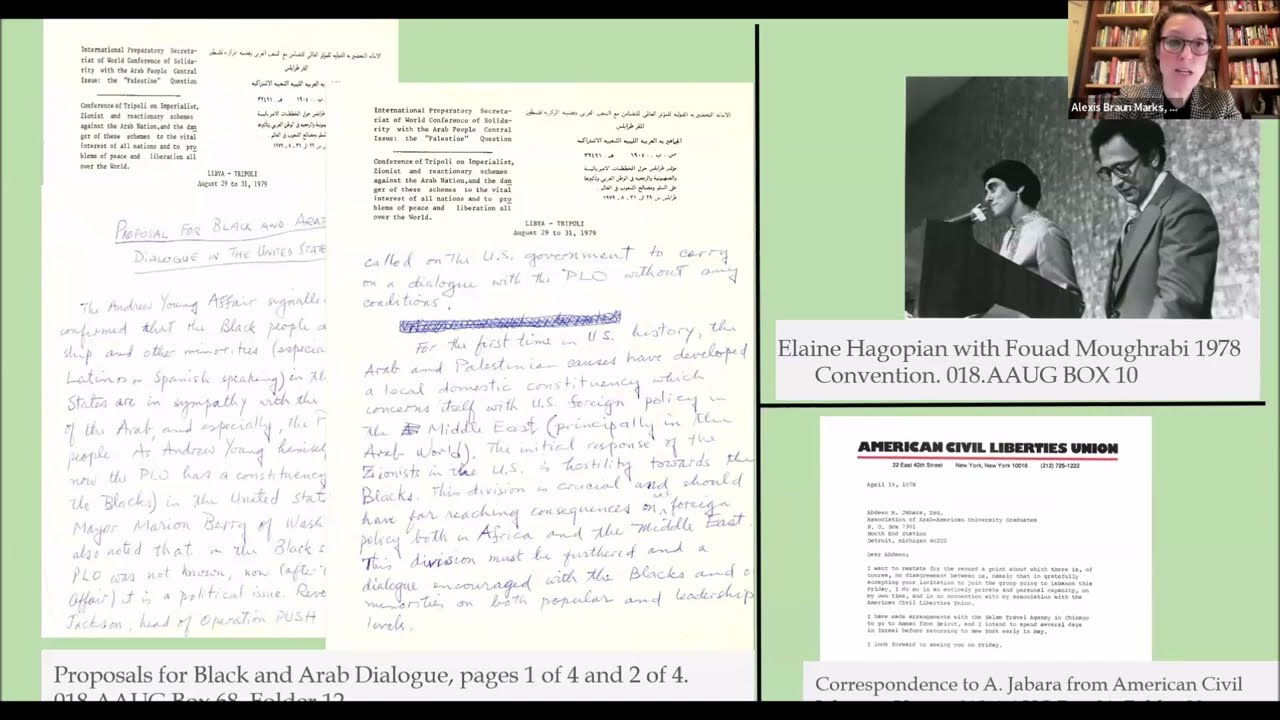 International Preparatory Secreta-
riat of World Conference of Solida-
rity with the Arab People Central
Issue: the "Palestine" Question
Conference of Tripoli on Imperialist,
Zionist and reactionary schemes
against the Arab Nation,and the dan
ger of these schemes to the vital
interest of all nations and to pro
blems of peace and liberation all
over the World.
LIBYA - TRIPOLI
August 29 to 31, 1979
PROPOSAL FOR BLACK AND ARAB
DIALOGUE IN THE UNITED STATE
The Andrew Young Affair signalled
confirmed that the Black people a
ship and other minorities (especia
Latinos or Spanish speaking) in th
States are in sympathy with the
of the Arab, and especially, the P
people. As Andrew Young himself
now the PLO has a constituency
the Blacks) in the United State
Mayor Marion Berry of Wash
also noted that in the Black
PLO was not known, now (after
Affair) it is a
Jackson, head of Operation PUSH
International Preparatory Secreta-
riat of World Conference of Solida-
rity with the Arab People Central
Issue: the "Palestine" Question
الجماهيرية العربية الليبية الشعبية الاشتراكية
Conference of Tripoli on Imperialist,
Zionist and reactionary schemes
against the Arab Nation,and the dan
ger of these schemes to the vital
interest of all nations and to pro
blems of peace and liberation all
over the World.
LIBYA - TRIPOLI
August 29 to 31, 1979
called on the U.S. government to carry
on a dialogue with the PLO without any
conditions.
For the first time in U.S. history, the
Arab and Palestinian causes have developed
a local domestic constituency which
concerns itself with U.S. foreign policy in
the Middle East (principally in the
Arab World). The initial response of the
Zionists in the U.S. is hostility towards the
Blacks. This division is crucial and should
have far reaching consequences on U.S. foreign
policy both in Africa and the Middle East.
This division must be furthered and a
dialogue encouraged with the Blacks and o
minorities on both popular and leadership
levels.
Proposals for Black and Arab Dialogue, pages 1 of 4 and 2 of 4.
018.AAUG Box 68, Folder 12
Alexis Braun Marks, ...
Elaine Hagopian with Fouad Moughrabi 1978
Convention. 018.AAUG BOX 10
AMERICAN CIVIL LIBERTIES UNION
22 East 40th Street New York, New York 10016 (212) 725-1222
April 19, 1978
Abdeen M. Jabara, Esq.
Association of Arab-American University Graduates
P. O. Box 7391
North End Station
Detroit, Michigan 48202
Dear Abdeen:
I want to restate for the record a point about which there is, of
course, no disagreement between us, namely that in gratefully
accepting your invitation to join the group going to Lebanon this
Friday, I do so in an entirely private and personal capacity, on
my own time, and in no connection with my association with the
American Civil Liberties Union.
I have made arrangements with the Salam Travel Agency in Chicago
to go to Amman from Beirut, and I intend to spend several days
in Israel before returning to New York early in May.
I look forward to seeing you on Friday.
Correspondence to A. Jabara from American Civil